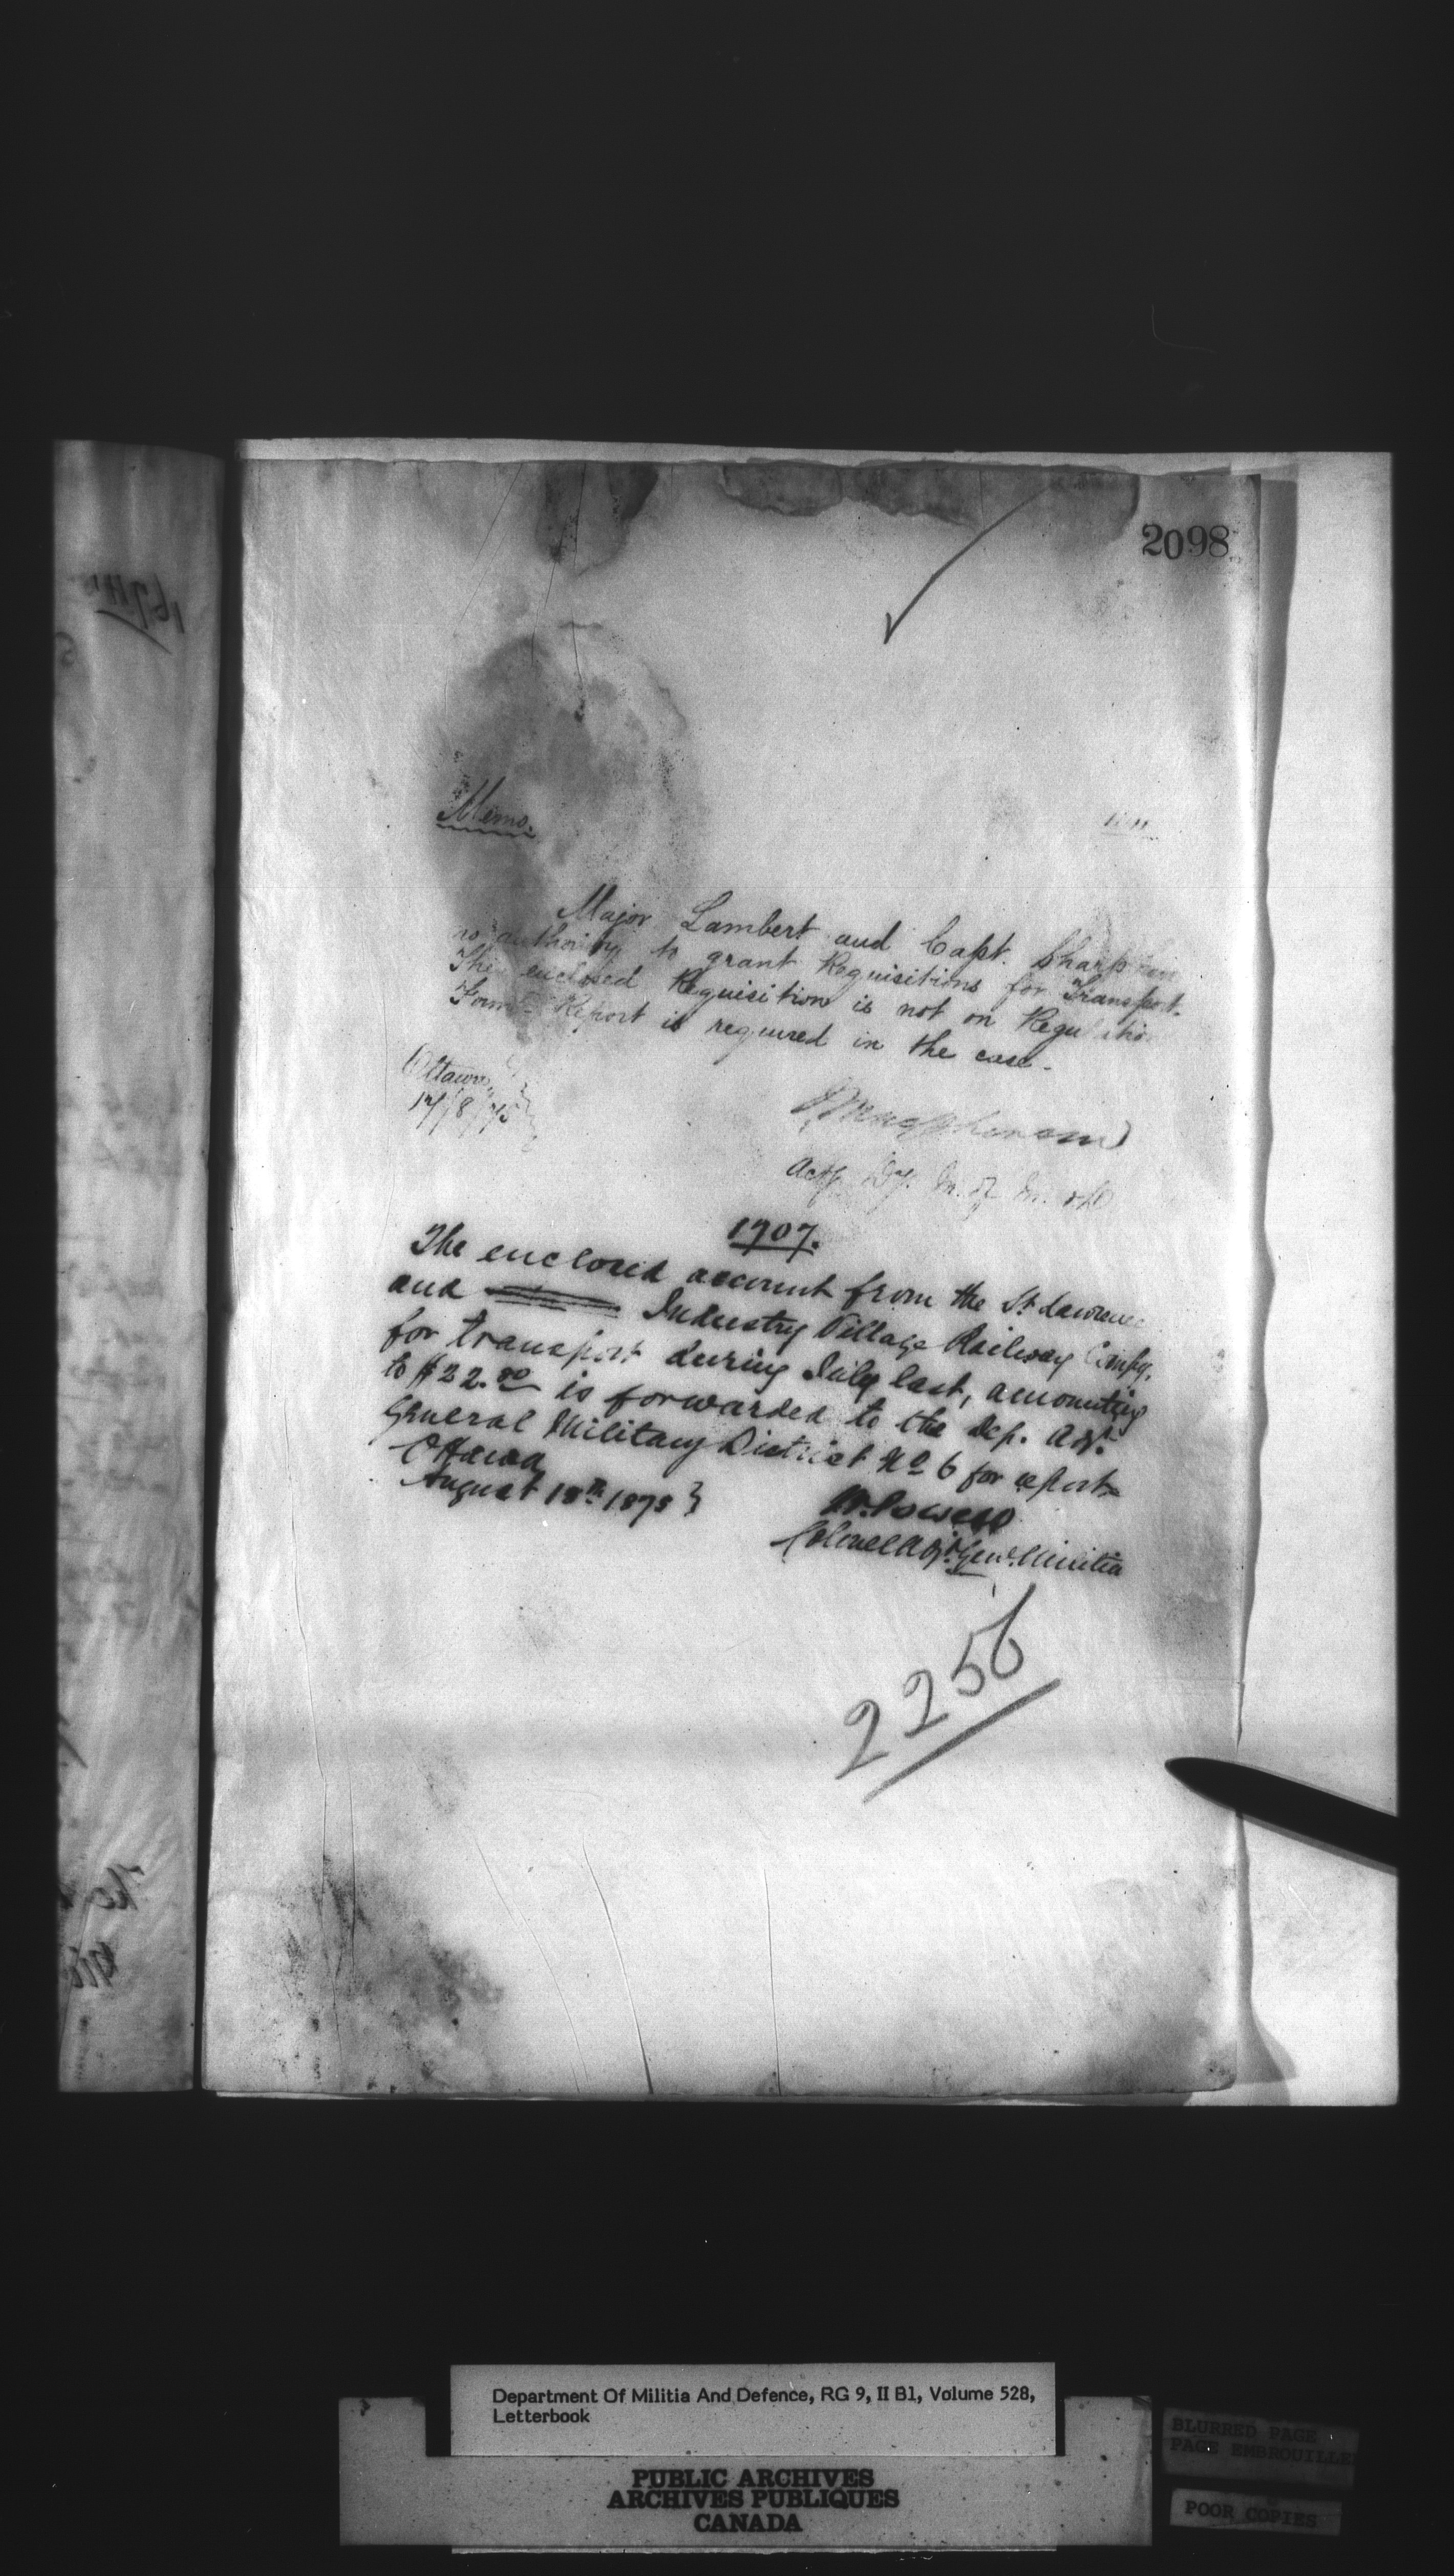 2098
Memo.
Major Lambert and Capt. Sharp have
no authority to grant Requisitions for Transport.
The enclosed Requisition is not on Regulation
Form. Report is required in the case.
Ottawa
17/8/75
Actg. Dy. M. of M. & D
1707.
The enclosed account from the St. Lawrence
and Industry Village Railway Compy.
for transport during July last, amounting
to $22.00 is forwarded to the Dep. Adjt.
General Military District No 6 for report
Ottawa
August 18th 1875
W. Powell
Colonel Adjt. Genl. Militia
2256
Department Of Militia And Defence, RG 9, II B1, Volume 528,
Letterbook
PUBLIC ARCHIVES
ARCHIVES PUBLIQUES
CANADA
BLURRED PAGE
PAGE EMBROUILLE
POOR COPIES